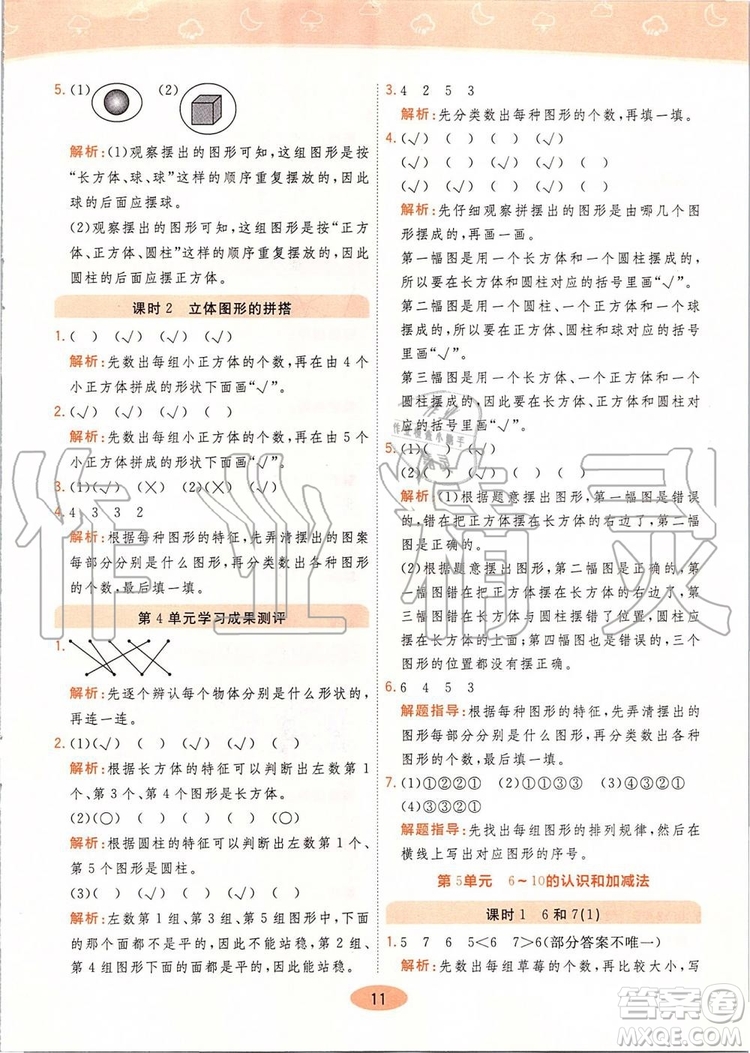 5.(1) (2)
解析:(1)观察摆出的图形可知,这组图形是按
“长方体、球、球”这样的顺序重复摆放的,因此
球的后面应摆球。
(2)观察摆出的图形可知,这组图形是按“正方
体、正方体、圆柱”这样的顺序重复摆放的,因此
圆柱的后面应摆正方体。
课时2 立体图形的拼搭
1.( ) (√) ( ) (√)
解析:先数出每组小正方体的个数,再在由4个
小正方体拼成的形状下面画“√”。
2.(√) (√) ( ) (√)
解析:先数出每组小正方体的个数,再在由5个
小正方体拼成的形状下面画“√”。
3.(1)(√) (╳) (2)(√) (╳)
4.4 3 3 2
解析:根据每种图形的特征,先弄清摆出的图案
每部分分别是什么图形,再分类数出每种图形
的个数,最后填一填。
第4单元学习成果测评
1.
解析:先逐个辨认每个物体分别是什么形状的,
再连一连。
2.(1)(√) ( ) (√) ( ) ( )
解析:根据长方体的特征可以判断出左数第1
个、第3个图形是长方体。
(2)(○) ( ) ( ) ( ) (○)
解析:根据圆柱的特征可以判断出左数第1个、
第5个图形是圆柱。
(3)( ) (√) ( ) (√)
解析:左数第1组、第3组图形中,摆在下面
的那个面都不是平面,因此不能站稳,第2组、
第4组下面的面都是平的,因此能站稳。
3.4 2 5 3
解析:先分类数出每种图形的个数,再填一填。
4.(√) ( ) ( ) (√) (√)
(√) (√) ( ) (√) ( )
解析:先仔细观察拼摆出的图形是由哪几个图
形摆成的,再画一画。
第一幅图是用一个长方体和一个圆柱摆成的,
所以要在长方体和圆柱对应的括号里画“√”。
第二幅图是用一个圆柱和一个球摆成的,
所以要在圆柱和球对应的括号
里画“√”。
第三幅图是用一个长方体、一个正方体和一个
圆柱摆成的,所以要在长方体、正方体和圆柱对
应的括号里画“√”。
5.(1)( ) (√)
(2)(√) ( ) ( )
解析:(1)根据题意摆出的图形,第一幅图是错误
的,错在把正方体摆在长方体的右边了,第二幅
图是正确的。
(2)根据题意摆出的图形,第二幅图是错误的,
错在长方体与圆柱摆放的位置反了,应该把长
方体摆在下面,第三幅图也是错误的,第三
个图形的位置没有摆正确。
6.6 4 5 3
解题指导:根据每种图形的特征,先弄清摆出的
图形每部分分别是什么图形,再分类数出每种
图形的个数。
7.(1)①②②① (2)①①③③ (3)①②①①
(4)③②②①
解题指导:先找出每组图形的排列规律,然后在
横线上写出对应图形的序号。
第5单元 6~10的认识和加减法
课时1 6和7(1)
1.5 7 6 5<6 7>6(部分答案不唯一)
解析:先数出每组草莓的个数,再比较大小,写
11
作业精灵
答案圈
MXQE.COM